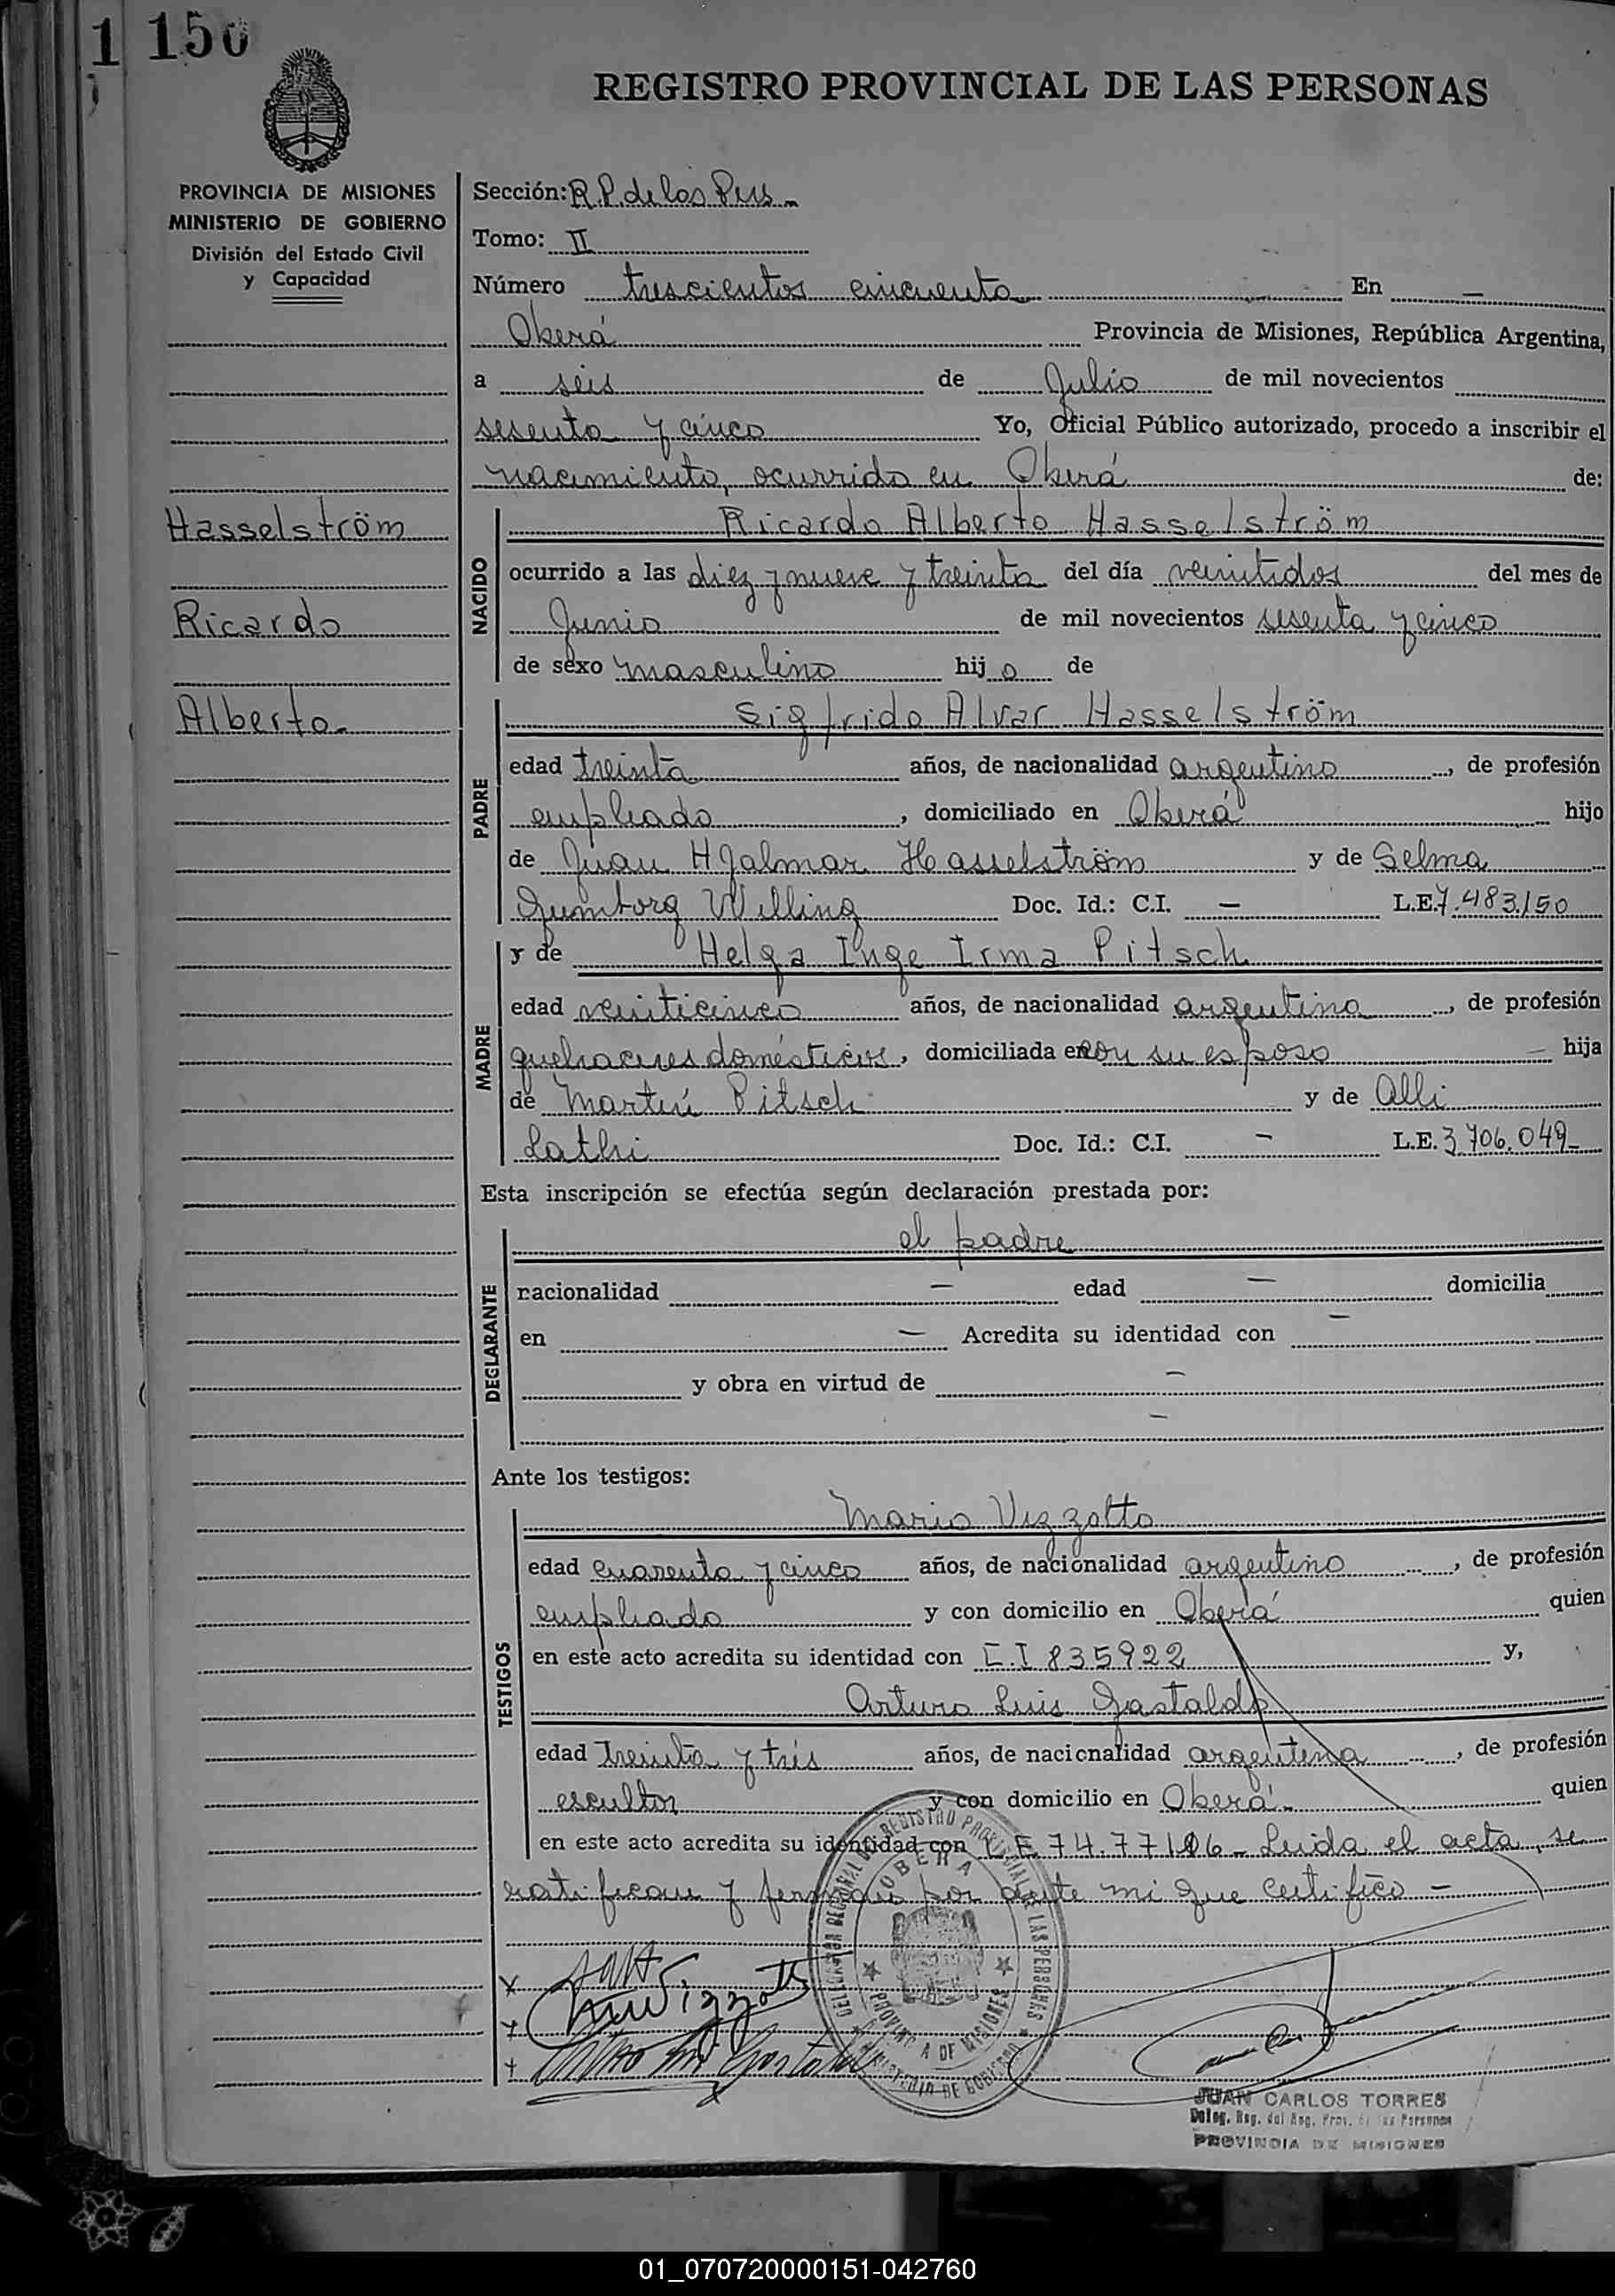 1 150
REGISTRO PROVINCIAL DE LAS PERSONAS
PROVINCIA DE MISIONES
MINISTERIO DE GOBIERNO
División del Estado Civil
y Capacidad
Hasselström
Ricardo
Alberto.
Sección: R.P. de las Pers.
Tomo: II
Número trescientos cincuenta En —
Oberá Provincia de Misiones, República Argentina,
a seis de Julio de mil novecientos
sesenta y cinco Yo, Oficial Público autorizado, procedo a inscribir el
nacimiento, ocurrido en Oberá de:
NACIDO
Ricardo Alberto Hasselström
ocurrido a las diez y nueve y treinta del día veintidos del mes de
Junio de mil novecientos sesenta y cinco
de sexo masculino hijo de
PADRE
Sigfrido Alvar Hasselström
edad treinta años, de nacionalidad argentino, de profesión
empleado, domiciliado en Oberá hijo
de Juan Hjalmar Hasselström y de Selma
Willing Doc. Id.: C.I. — L.E. 7.483.150
MADRE
y de Helga Inge Irma Pitsch
edad veinticinco años, de nacionalidad argentina, de profesión
quehaceres domésticos, domiciliada en con su esposo — hija
de Martín Pitsch y de Alli
Lathi Doc. Id.: C.I. — L.E. 3.706.049-
Esta inscripción se efectúa según declaración prestada por:
DEGLARANTE
el padre
nacionalidad — edad — domicilia
en — Acredita su identidad con —
y obra en virtud de —
—
Ante los testigos:
TESTIGOS
Mario Vizzotto
edad cuarenta y cinco años, de nacionalidad argentino, de profesión
empleado y con domicilio en Oberá quien
en este acto acredita su identidad con C.I 835922 y,
Arturo Luis Gastaldo
edad treinta y tres años, de nacionalidad argentina, de profesión
escultor y con domicilio en Oberá- quien
en este acto acredita su identidad con L E 74.77106- Leida el acta, se
ratifican y firman por ante mi que certifico -
REGISTRO PROVINCIAL DE LAS PERSONAS
OBERA
PROVINCIA DE MISIONES
MINISTERIO DE GOBIERNO
JUAN CARLOS TORRES
Deleg. Reg. del Reg. Prov. de las Personas
PROVINCIA DE MISIONES
01_070720000151-042760